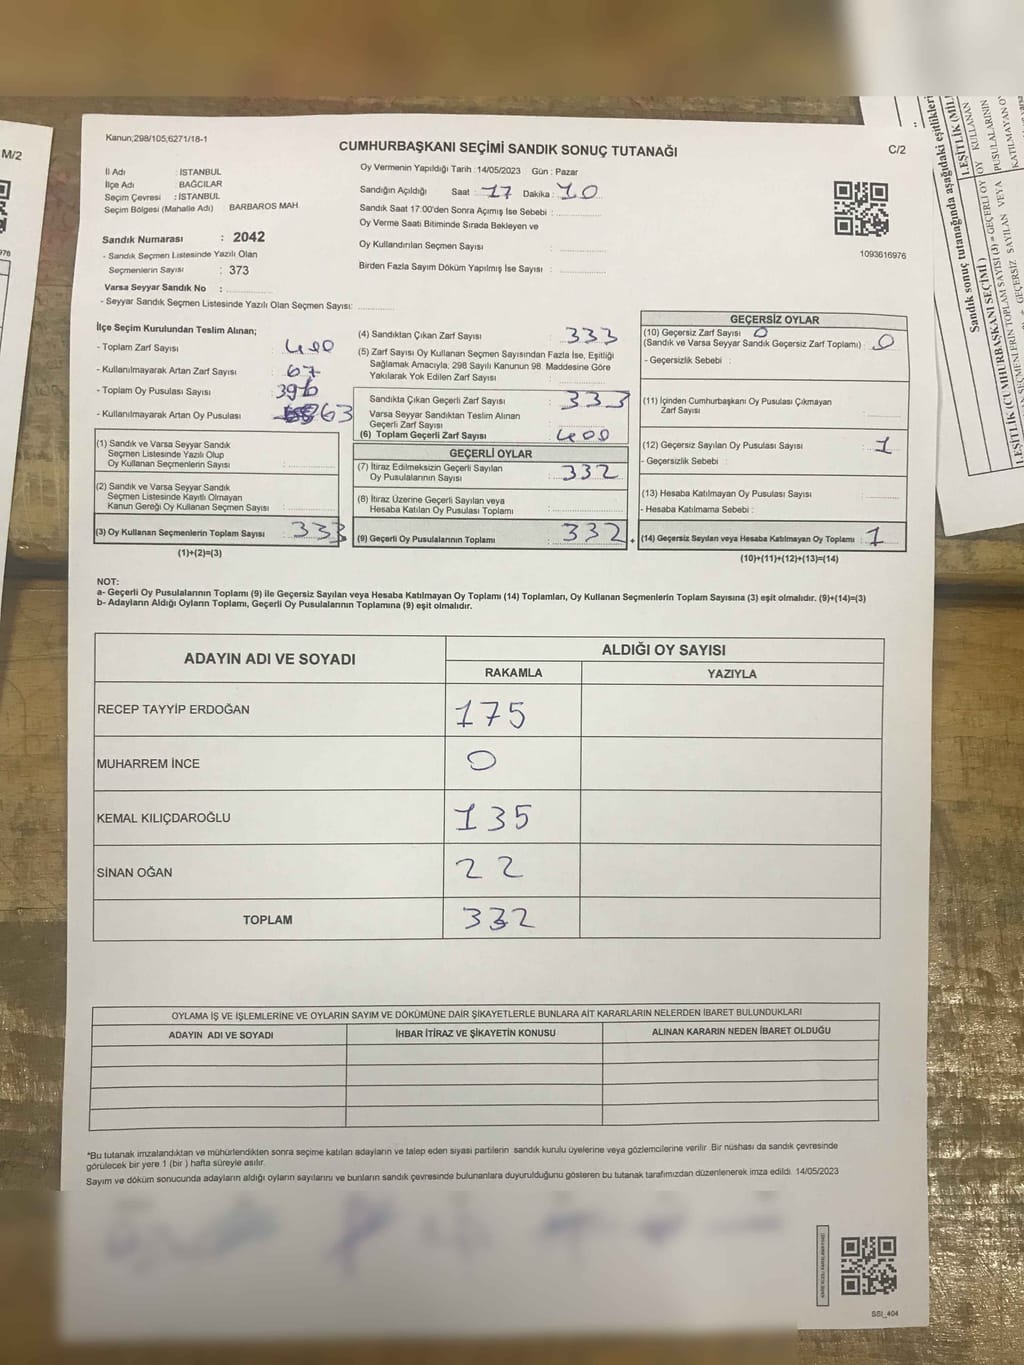 Kanun;298/105;6271/18-1
CUMHURBAŞKANI SEÇİMİ SANDIK SONUÇ TUTANAĞI
C/2
M/2
İl Adı : İSTANBUL
İlçe Adı : BAĞCILAR
Seçim Çevresi : İSTANBUL
Seçim Bölgesi (Mahalle Adı) BARBAROS MAH.
Sandık Numarası : 2042
- Sandık Seçmen Listesinde Yazılı Olan
Seçmenlerin Sayısı : 373
Varsa Seyyar Sandık No :
- Seyyar Sandık Seçmen Listesinde Yazılı Olan Seçmen Sayısı:
Oy Vermenin Yapıldığı Tarih :14/05/2023 Gün : Pazar
Sandığın Açıldığı Saat : 17 Dakika : 10
Sandık Saat 17:00'den Sonra Açımış İse Sebebi :
Oy Verme Saati Bitiminde Sırada Bekleyen ve
Oy Kullandırılan Seçmen Sayısı :
Birden Fazla Sayım Döküm Yapılmış İse Sayısı :
1093616976
İlçe Seçim Kurulundan Teslim Alınan;
- Toplam Zarf Sayısı : 400
- Kullanılmayarak Artan Zarf Sayısı : 67
- Toplam Oy Pusulası Sayısı : 396
- Kullanılmayarak Artan Oy Pusulası : 63
(1) Sandık ve Varsa Seyyar Sandık
Seçmen Listesinde Yazılı Olup
Oy Kullanan Seçmenlerin Sayısı :
(2) Sandık ve Varsa Seyyar Sandık
Seçmen Listesinde Kayıtlı Olmayan
Kanun Gereği Oy Kullanan Seçmen Sayısı :
(3) Oy Kullanan Seçmenlerin Toplam Sayısı : 333
(1)+(2)=(3)
(4) Sandıktan Çıkan Zarf Sayısı : 333
(5) Zarf Sayısı Oy Kullanan Seçmen Sayısından Fazla İse, Eşitliği
Sağlamak Amacıyla; 298 Sayılı Kanunun 98. Maddesine Göre
Yakılarak Yok Edilen Zarf Sayısı :
Sandıkta Çıkan Geçerli Zarf Sayısı : 333
Varsa Seyyar Sandıktan Teslim Alınan
Geçerli Zarf Sayısı :
(6) Toplam Geçerli Zarf Sayısı : 400
GEÇERLİ OYLAR
(7) İtiraz Edilmeksizin Geçerli Sayılan
Oy Pusulalarının Sayısı : 332
(8) İtiraz Üzerine Geçerli Sayılan veya
Hesaba Katılan Oy Pusulası Toplamı :
(9) Geçerli Oy Pusulalarının Toplamı : 332
+
GEÇERSİZ OYLAR
(10) Geçersiz Zarf Sayısı 0
(Sandık ve Varsa Seyyar Sandık Geçersiz Zarf Toplamı) : 0
- Geçersizlik Sebebi :
(11) İçinden Cumhurbaşkanı Oy Pusulası Çıkmayan
Zarf Sayısı :
(12) Geçersiz Sayılan Oy Pusulası Sayısı : 1
- Geçersizlik Sebebi :
(13) Hesaba Katılmayan Oy Pusulası Sayısı :
- Hesaba Katılmama Sebebi :
(14) Geçersiz Sayılan veya Hesaba Katılmayan Oy Toplamı : 1
(10)+(11)+(12)+(13)=(14)
NOT:
a- Geçerli Oy Pusulalarının Toplamı (9) ile Geçersiz Sayılan veya Hesaba Katılmayan Oy Toplamı (14) Toplamları, Oy Kullanan Seçmenlerin Toplam Sayısına (3) eşit olmalıdır. (9)+(14)=(3)
b- Adayların Aldığı Oyların Toplamı, Geçerli Oy Pusulalarının Toplamına (9) eşit olmalıdır.
ADAYIN ADI VE SOYADI
ALDIĞI OY SAYISI
RAKAMLA YAZIYLA
RECEP TAYYİP ERDOĞAN 175
MUHARREM İNCE 0
KEMAL KILIÇDAROĞLU 135
SİNAN OĞAN 22
TOPLAM 332
OYLAMA İŞ VE İŞLEMLERİNE VE OYLARIN SAYIM VE DÖKÜMÜNE DAİR ŞİKAYETLERLE BUNLARA AİT KARARLARIN NELERDEN İBARET BULUNDUKLARI
ADAYIN ADI VE SOYADI İHBAR İTİRAZ VE ŞİKAYETİN KONUSU ALINAN KARARIN NEDEN İBARET OLDUĞU
*Bu tutanak imzalandıktan ve mühürlendikten sonra seçime katılan adayların ve talep eden siyasi partilerin sandık kurulu üyelerine veya gözlemcilerine verilir. Bir nüshası da sandık çevresinde
görülecek bir yere 1 (bir ) hafta süreyle asılır.
Sayım ve döküm sonucunda adayların aldığı oyların sayılarını ve bunların sandık çevresinde bulunanlara duyurulduğunu gösteren bu tutanak tarafımızdan düzenlenerek imza edildi. 14/05/2023
SSI_404